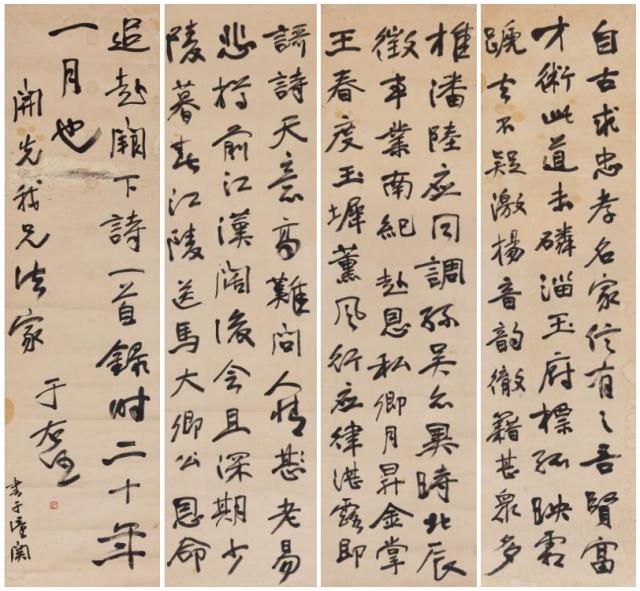 自古求忠孝名家信有之吾賢富
才術此道未磷淄玉府標孤映霜
蹏去不疑激揚音韵徹籍甚衆多
推潘陸應同調孫吳亦異時北辰
徵事業南紀赴恩私卿月昇金掌
王春度玉墀薰風行應律湛露即
謌詩天意高難問人情老易
悲樽前江漢闊後會且深期少
陵暮春江陵送馬大卿公恩命
追赴闕下詩一首錄時二十年
一月也
開先我兄法家
于右任
書于潼關